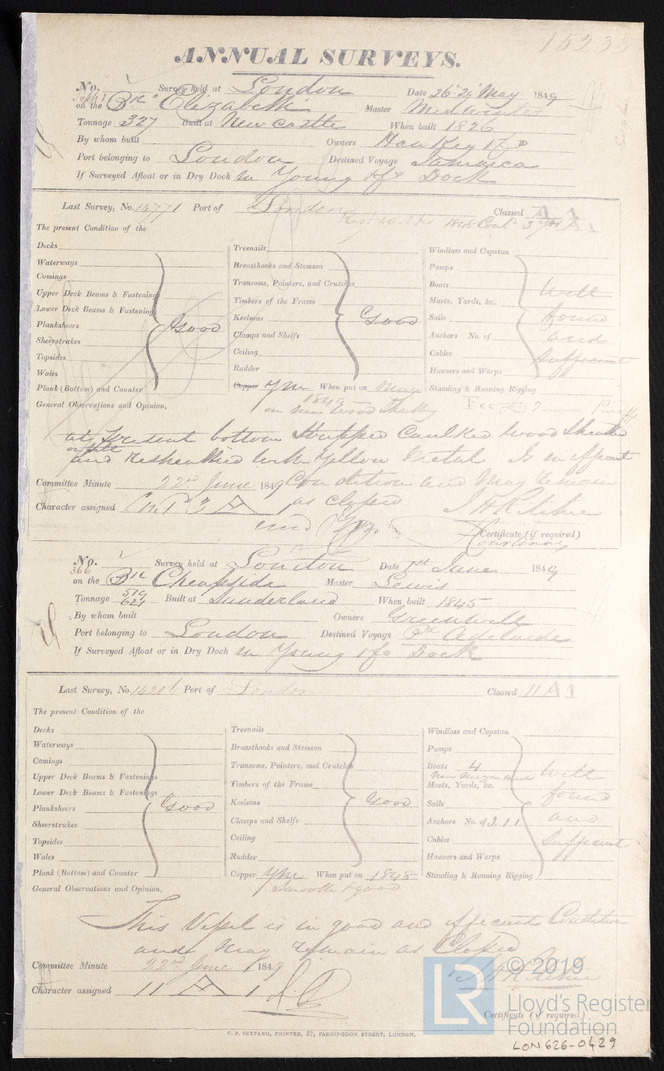 ANNUAL SURVEYS.
No. Survey held at London Date 26 May 1849
on the Bk Elizabeth Master
Tonnage 327 Built at Newcastle When built 1826
By whom built Owners Hankey & Co
Port belonging to London Destined Voyage Jamaica
If Surveyed Afloat or in Dry Dock in Young & Co Dock
Last Survey, No. 14771 Port of London Classed Æ 1
The present Condition of the
Decks
Waterways
Comings
Upper Deck Beams & Fastenings
Lower Deck Beams & Fastenings
Planksheers
Sheerstrakes
Topsides
Wales
Plank (Bottom) and Counter
Good
Treenails
Breasthooks and Stemson
Transoms, Pointers, and Crutches
Timbers of the Frame
Keelsons
Clamps and Shelfs
Ceiling
Rudder
Copper YM When put on May 1849
on new wood Sheathg
Good
Windlass and Capstan
Pumps
Boats
Masts, Yards, &c.
Sails
Anchors No. of
Cables
Hawsers and Warps
Standing & Running Rigging
Well found and Sufficient
General Observations and Opinion,
at present bottom Stripped Caulked Wood Sheathed
and resheathed with Yellow Metal Is in efficient
Condition and May remain
as Classed
Committee Minute 22nd June 1849
Character assigned
Certificate (if required)
No. 366 Survey held at London Date June 1849
on the Bk Cheapside Master Lewis
Tonnage 519 621 Built at Sunderland When built 1845
By whom built Owners Greenwell
Port belonging to London Destined Voyage Pt Adelaide
If Surveyed Afloat or in Dry Dock in Young & Co Dock
Last Survey, No. Port of London Classed 11 A 1
The present Condition of the
Decks
Waterways
Comings
Upper Deck Beams & Fastenings
Lower Deck Beams & Fastenings
Planksheers
Sheerstrakes
Topsides
Wales
Plank (Bottom) and Counter
Good
Treenails
Breasthooks and Stemson
Transoms, Pointers, and Crutches
Timbers of the Frame
Keelsons
Clamps and Shelfs
Ceiling
Rudder
Copper YM When put on 1848
Smooth & good
Good
Windlass and Capstan
Pumps
Boats 4
Masts, Yards, &c.
Sails
Anchors No. of 3.1.1
Cables
Hawsers and Warps
Standing & Running Rigging
Well found and Sufficient
General Observations and Opinion,
This Vessel is in good and efficient Condition
and May remain as Classed
Committee Minute 22nd June 1849
Character assigned 11 A 1
Certificate (if required)
C. F. SEYFANG, PRINTER, 57, FARRINGDON STREET, LONDON.
© 2019
LR
Lloyd's Register
Foundation
LON626-0429